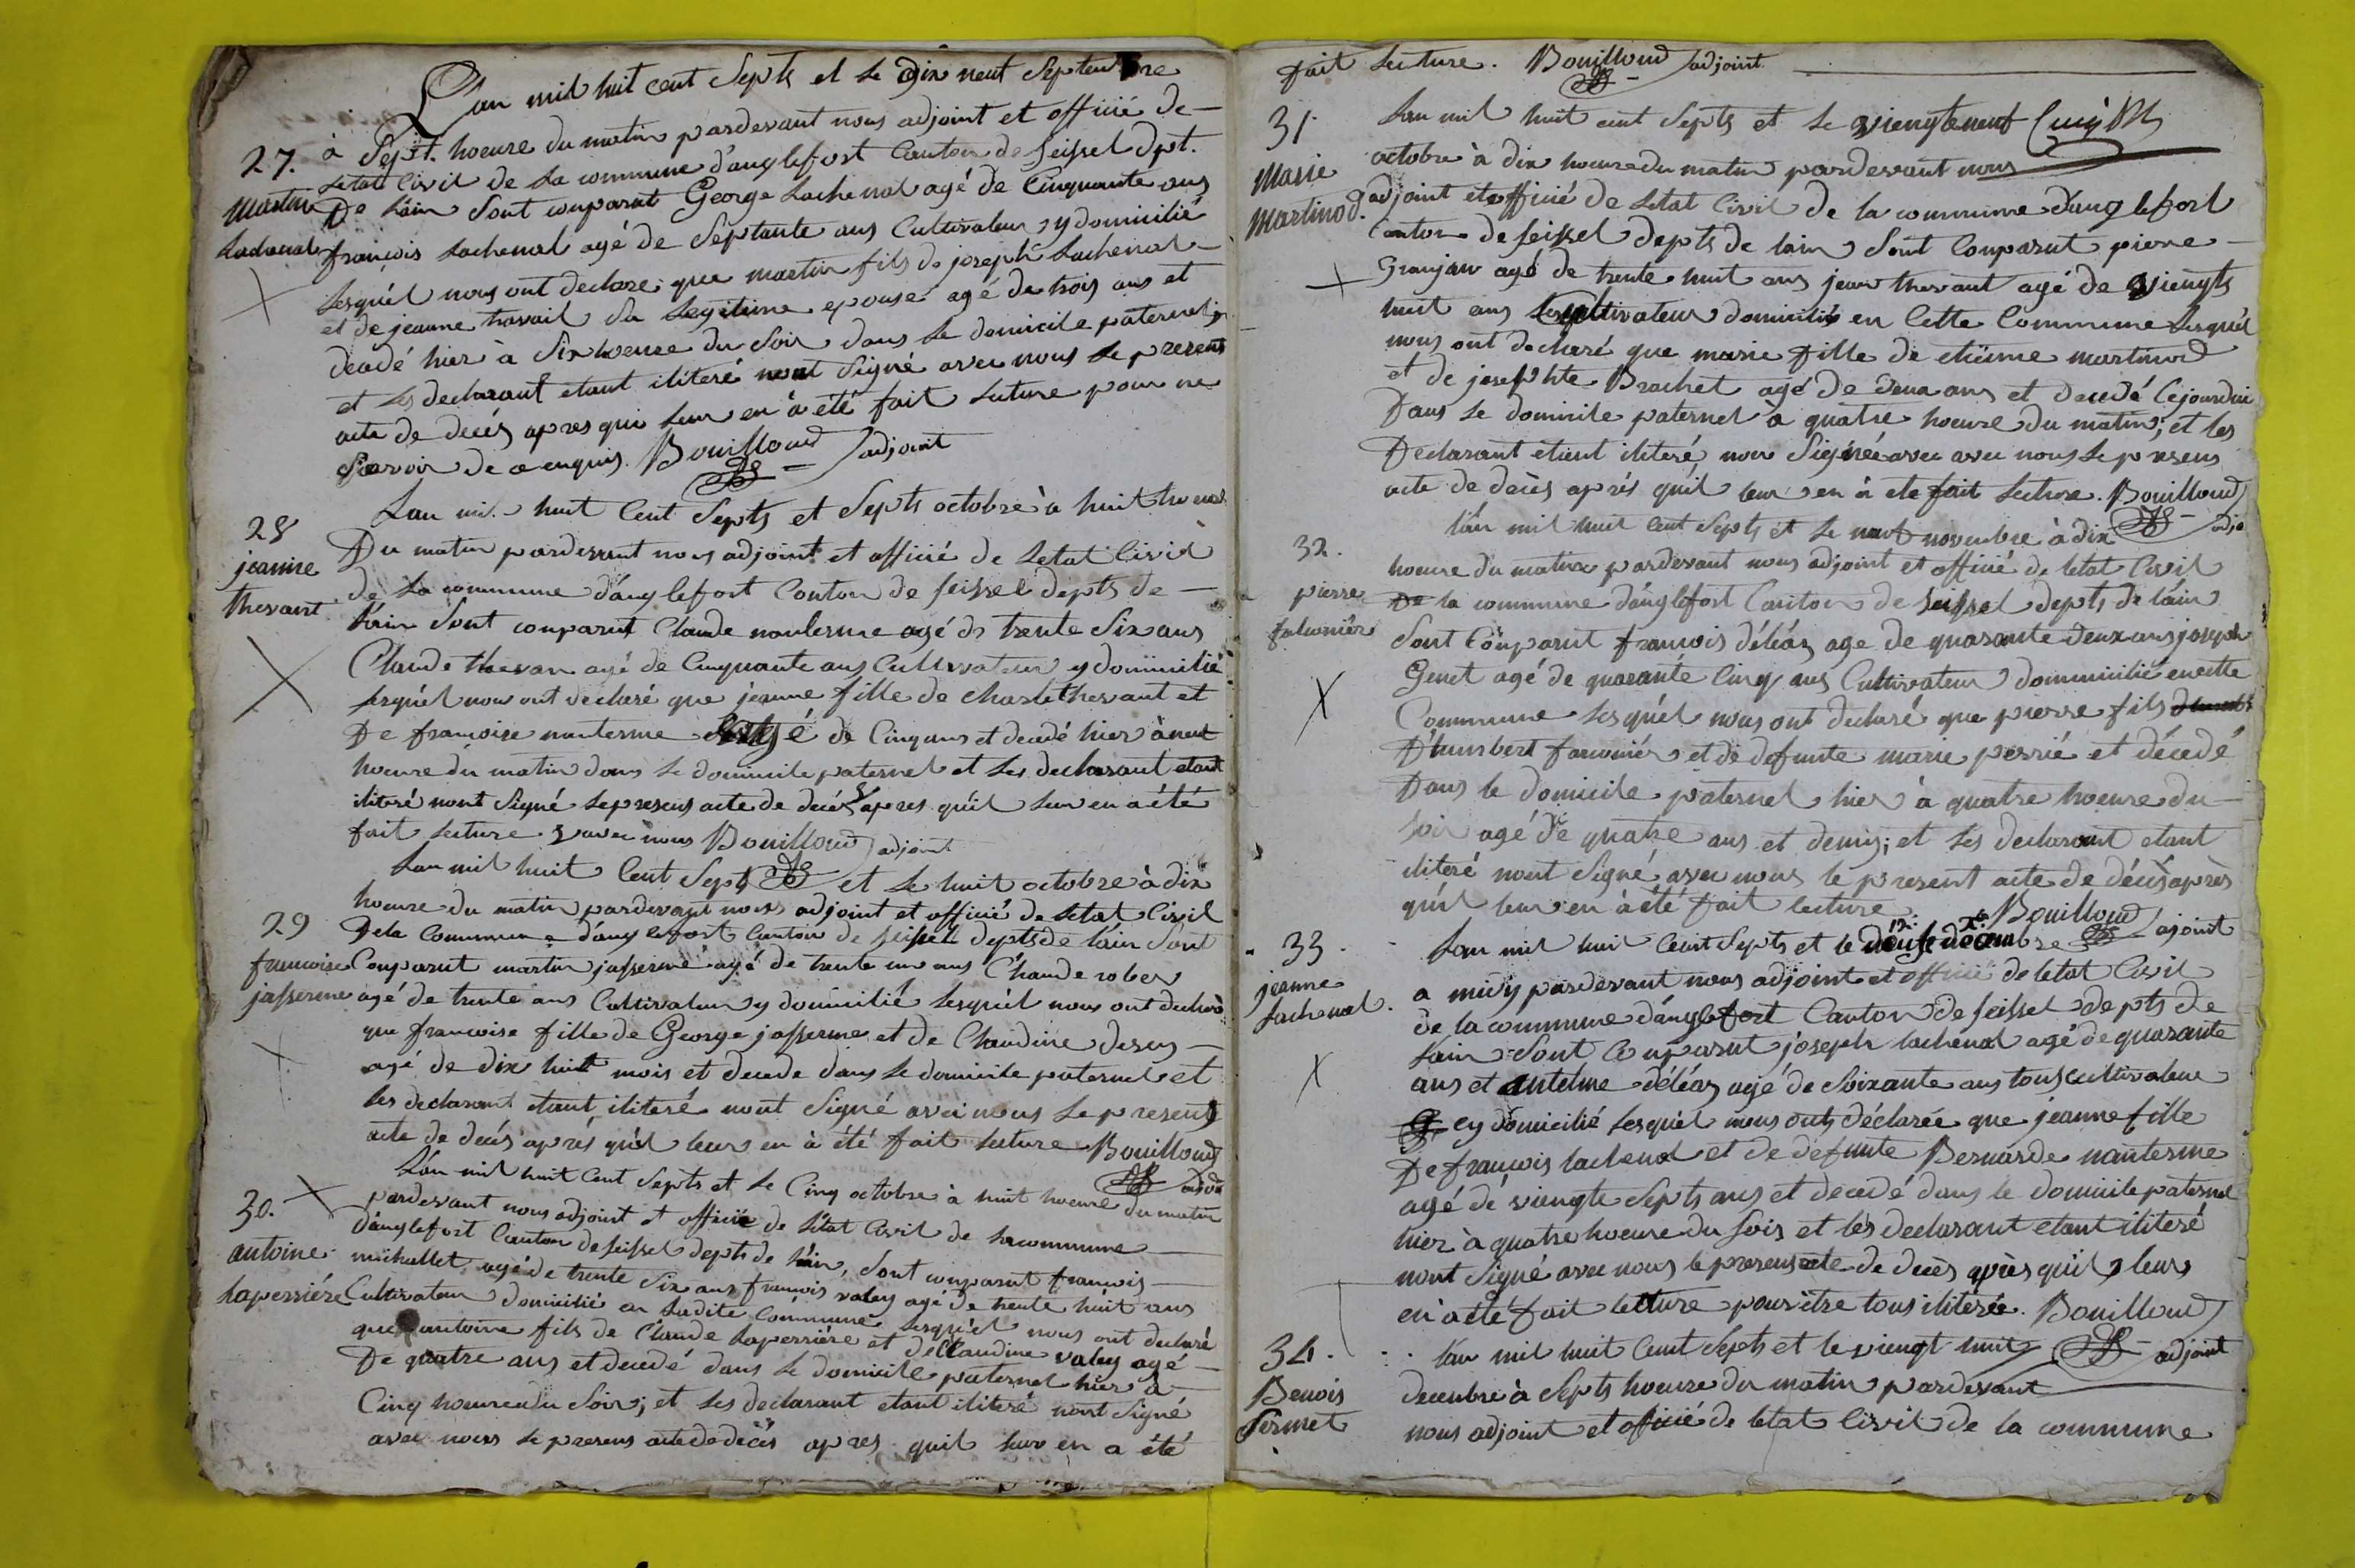 L'an mil huit cent Septs et le Dix neuf Septembre
27.
à Sept. hoeure du matin pardevant nous adjoint et officié de
Letat Civil de La commune d'anglefort Canton de Seissel dpt.
Martin
De Lain Sont comparut George Lachenal agé de Cinquante ans
Lachenal
françois Lachenal agé de Septante ans Cultivateur y domicilié
Lesquél nous ont declare que martin fils de joseph Lachenal
et de jeanne travail Sa Legitime epouse agé de trois ans et
decedé hier à Six hoeure du Soir dans Le domicile paternel;
et Les declarant etant iliteré nont Signé avec nous Le present
acte de decés apres qui Leur en à été fait Lecture pour ne
Scavoir de ce enquis. Bouilloud adjoint
28
Lan mil huit Cent Septs et Septs octobre à huit hoeure
jeanne
Du matin pardevant nous adjoint et officié de Letat Civil
thevant
de La commune d'anglefort Canton de Seissel depts de
Lain Sont comparut Claude nanterme agé de trente Six ans
Claude thevan agé de Cinquante ans Cultivateur y domicilié
Lesquél nous ont declaré que jeanne fille de Charle thevant et
De francoise nanterme agé de Cinq ans et decedé hier à neuf
hoeure du matin dans Le domicile paternel et Les declarant etant
iliteré nont Signé Le presens acte de decés apres qu'il Leur en a été
fait Lecture avec nous Bouilloud adjoint
Lan mil huit Cent Septs et Le huit octobre à dix
hoeure du matin pardevant nous adjoint et officié de Letat Civil
29
De la Commune d'anglefort Canton de Seissel depts de Lain Sont
francoise
Comparut martin jasserme agé de trente un ans Claude rober
jasserme
agé de trente ans Cultivateur y domicilié Lesquél nous ont declaré
que francoise fille de George jasserme et de Claudine
agé de dix huit mois et decede dans Le domicile paternel et
Les declarant etant iliteré nont Signé avec nous Le present
acte de decés aprés qu'il Leur en à été fait Lecture Bouilloud
Lan mil huit Cent Septs et Le Cinq octobre à huit hoeure du matin
30.
pardevant nous adjoint et officié de Létat Civil de La commune
antoine
d'anglefort Canton de Seissel depts de Lain, Sont comparut francois
Laperriére
michallet agé de trente Six ans francois valey agé de trente huit ans
Cultivateur domicilié en Ladite Commune Lesquél nous ont declaré
que antoine fils de Claude Laperriére et de Claudine valey agé
De quatre ans et decedé dans Le domicile paternel hier à
Cinq hoeure du Soir; et Les declarant etant iliteré nont Signé
avec nous Le presens acte de decés apres quil Leur en a été
fait Lecture. Bouilloud adjoint
31.
Lan mil huit cent Septs et Le viengteneuf
Marie
octobre à dix hoeure du matin pardevant nous
Martinod.
adjoint et officié de Letat Civil de la commune d'anglefort
Canton de Seissel depts de lain Sont Comparut pierre
Granjan agé de trente huit ans jean thevant agé de viengts
huit ans Cultivateur domicilié en Cette Commune Lesquél
nous ont declaré que marie fille de etiénne martinod
et de josephte Brachet agé de deux ans et decedé Cejourdui
Dans Le domicile paternel à quatre hoeure du matin; et les
Declarant etient iliteré non Signée avec avec nous Le presens
acte de decès aprés quil leur en à ete fait Lecture. Bouilloud
lan mil huit Cent Septs et Le neuf novembre à dix
32.
hoeure du matin pardevant nous adjoint et officié de letat Civil
pierre
De la commune d'anglefort Canton de Seissel depts de lain
falconier
Sont Comparut francois déléaz age de quarante deux ans joseph
Genet agé de quarante Cinq ans Cultivateur domicilié en cette
Commune Lesquél nous ont declaré que pierre fils
D'humbert farconiér et de defunte marie perrié et décedé
Dans le domicile paternel hier à quatre hoeure du
Soir agé de quatre ans et demis; et Les declarant etant
iliteré nont Signé avec nous le present acte de décès après
qu'il leur en à été fait lecture Bouilloud ajoint
33.
Lan mil huit Cent Septs et le douse décembre
jeanne
a midy pardevant nous adjoint et officié de letat Civil
Lachenal.
de la commune d'anglefort Canton de Seissel depts de
Lain Sont Comparut joseph lachenal agé de quarante
ans et antelme déléaz agé de Soixante ans tous cultivateur
y domicilié Lesquél nous onts déclarée que jeanne fille
De francois lachenal et de defunte Bernarde nanterme
agé de viengte Septs ans et decedé dans le domicile paternel
hier à quatre hoeure du Soir et lés declarant etant iliteré
nont Signé avec nous le presens acte de decès après quil leur
en à eté fait lecture pour être tous iliterée. Bouilloud
34.
Lan mil huit Cent Septs et le viengt huit adjoint
Benois
decembre à Septs hoeure du matin pardevant
Sermet
nous adjoint et officié de letat Civil de la commune